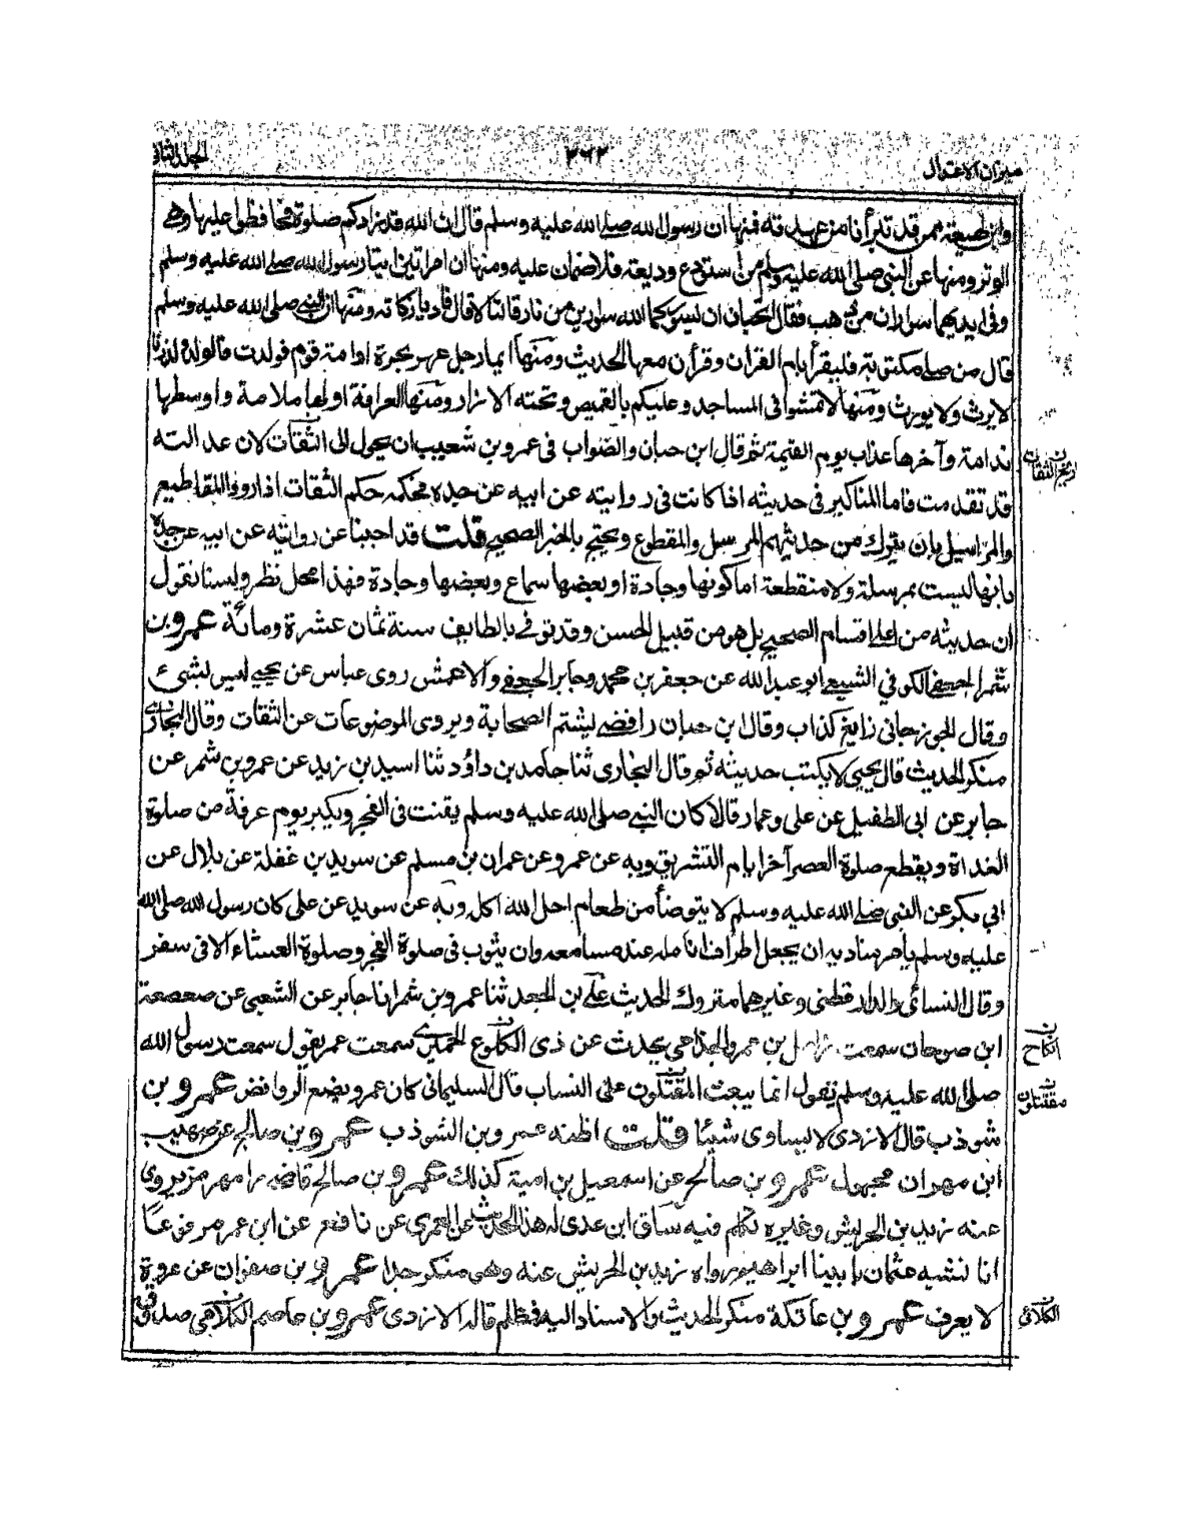 ميزان الاعتدال
٢٦٢
الجلد الثانى
وابن لهيعة ممن قد تبرأنا من عهدته فمنها ان رسول الله صلى الله عليه وسلم قال ان الله قد زادكم صلوة فحافظوا عليها وهى
الوتر ومنها عن النبى صلى الله عليه وسلم من استودع وديعة فلا ضمان عليه ومنها ان امرأتين اتيتا رسول الله صلى الله عليه وسلم
وفى ايديهما سواران من ذهب فقال اتحبان ان يسوركما الله سوارين من نار قالتا لا قال فاديا زكاته ومنها ان النبى صلى الله عليه وسلم
قال من صلى مكتوبة فليقرأ بام القران وقرأن معها الحديث ومنها ايما رجل عهر بحرة او امة قوم فولدت فالولد ولد زنا
لا يرث ولا يورث ومنها لا تمشوا فى المساجد وعليكم بالقميص وتحته الازار ومنها العرافة اولها ملامة واوسطها
ندامة وآخرها عذاب يوم القيمة ثم قال ابن حبان والصواب فى عمرو بن شعيب ان يحول الى الثقات لان عدالته
قد تقدمت فاما المناكير فى حديثه اذا كانت فى روايته عن ابيه عن جده فحكمه حكم الثقات اذا رووا المقاطيع
والمراسيل بان يترك من حديثهم المرسل والمقطوع ويحتج بالخبر الصحيح قلت قد اجبنا عن روايته عن ابيه عن جده
بانها ليست بمرسلة ولا منقطعة اما كونها وجادة او بعضها سماع وبعضها وجادة فهذا محل نظر ولسنا نقول
ان حديثه من اعلى اقسام الصحيح بل هو من قبيل الحسن وقد توفى بالطايف سنة ثمان عشرة ومائة عمرو بن
شمر الجعفى الكوفى الشيعى ابو عبد الله عن جعفر بن محمد وجابر الجعفى والاعمش روى عباس عن يحيى ليس بشىء
وقال الجوزجانى زايغ كذاب وقال ابن حبان رافضى يشتم الصحابة ويروى الموضوعات عن الثقات وقال البخارى
منكر الحديث قال يحيى لا يكتب حديثه ثم قال البخارى ثنا حامد بن داؤد ثنا اسيد بن زيد عن عمرو بن شمر عن
جابر عن ابى الطفيل عن على وعمار قالا كان النبى صلى الله عليه وسلم يقنت فى الفجر ويكبر يوم عرفة من صلوة
الغداة ويقطع صلوة العصر آخر ايام التشريق وبه عن عمرو عن عمران بن مسلم عن سويد بن غفلة عن بلال عن
ابى بكر عن النبى صلى الله عليه وسلم لا يتوضأ من طعام احل الله اكله وبه عن سويد عن على كان رسول الله صلى الله
عليه وسلم يأمر مناديه ان يجعل اطراف انامله عند مسامعه وان يثوب فى صلوة الفجر وصلوة العشاء الا فى سفر
وقال النسائى والدارقطنى وغيرهما متروك الحديث على بن الجعد ثنا عمرو بن شمر انا جابر عن الشعبى عن صعصعة
ابن صوحان سمعت زامل بن عمرو الجذامى يحدث عن ذى الكلوع الحميرى سمعت عمر يقول سمعت رسول الله
صلى الله عليه وسلم يقول انما يبعث المقتلون على النساب قال السليمانى كان عمرو يضع للروافض عمرو بن
شوذب قال الازدى لا يساوى شيئا قلت اظنه عمرو بن الشوذب عمرو بن صالح عن صهيب
ابن مهران مجهول عمرو بن صالح عن اسمعيل بن امية كذلك عمرو بن صالح قاضى رامهرمز يروى
عنه زيد بن الحريش وغيره تكلم فيه ساق ابن عدى له هذا الحديث عن العمرى عن نافع عن ابن عمر مرفوعا
انا نشبه عثمان بابينا ابراهيم رواه زيد بن الحريش عنه وهى منكر جدا عمرو بن صفوان عن عروة
لا يعرف عمرو بن عاتكة منكر الحديث والاسناد اليه فمظلم قاله الازدى عمرو بن عاصم الكلاعى صدوق
الكلابى